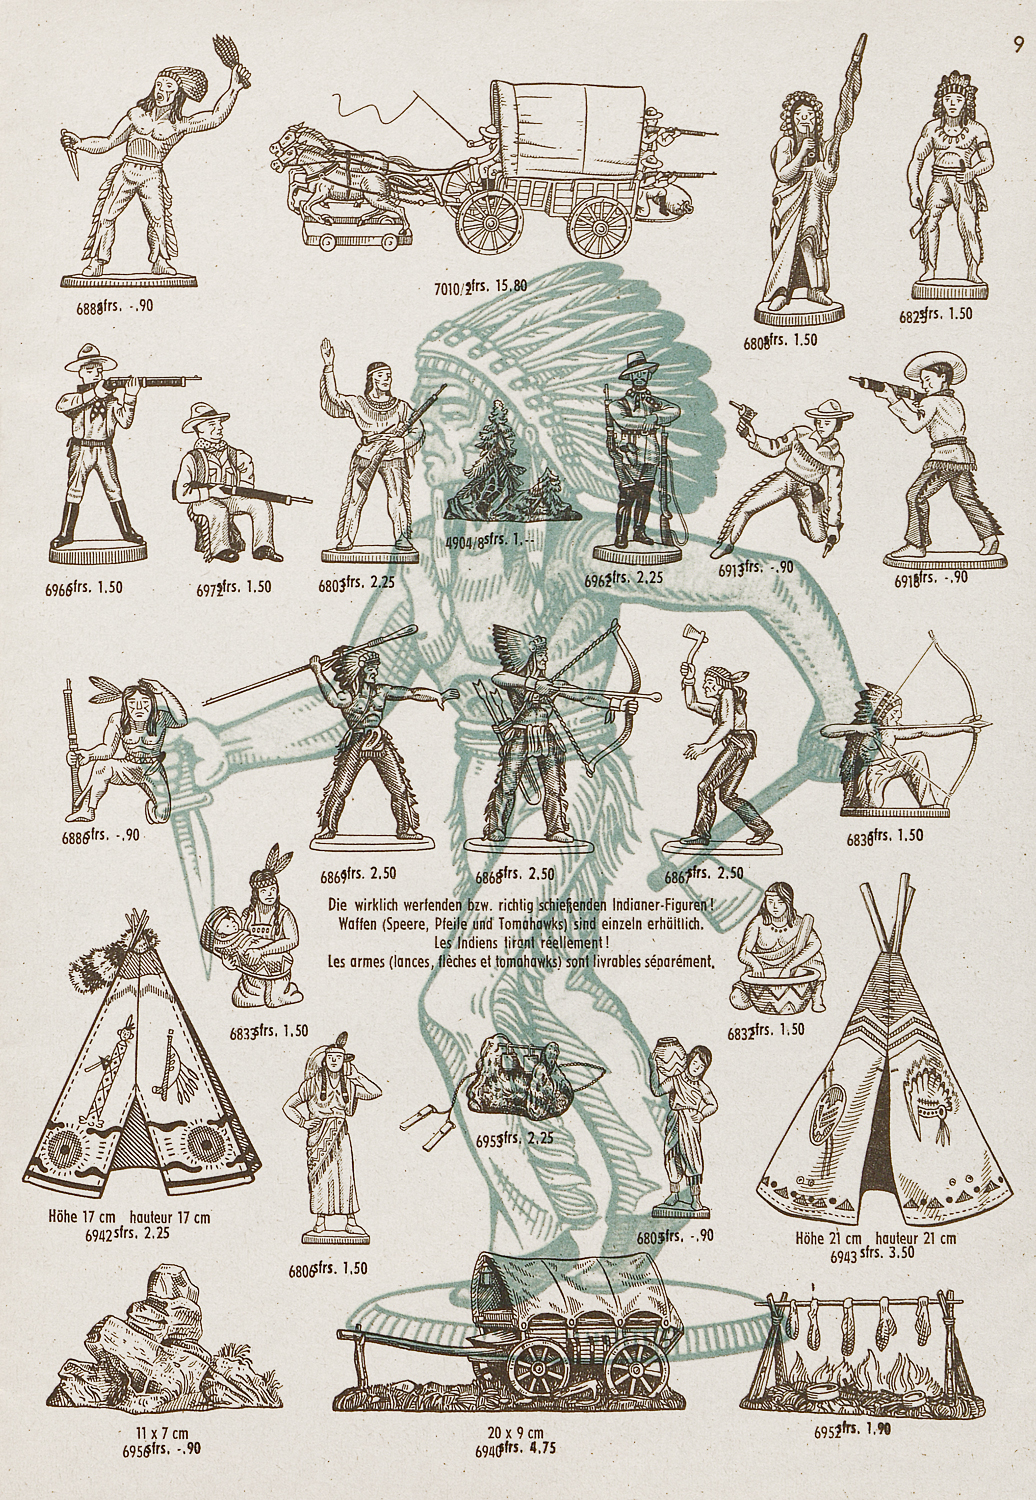 9
6888 sfrs. -.90
7010/2 sfrs. 15.80
6808 sfrs. 1.50
6825 sfrs. 1.50
6966 sfrs. 1.50
6972 sfrs. 1.50
6803 sfrs. 2.25
4904/8 sfrs. 1.--
6962 sfrs. 2,25
6913 sfrs. -.90
6918 sfrs. -.90
6886 sfrs. -.90
6869 sfrs. 2.50
6868 sfrs. 2.50
6867 sfrs. 2.50
6836 sfrs. 1.50
Die wirklich werfenden bzw. richtig schießenden Indianer-Figuren!
Waffen (Speere, Pfeile und Tomahawks) sind einzeln erhältlich.
Les Indiens tirant réellement!
Les armes (lances, flèches et tomahawks) sont livrables séparément.
6833 sfrs. 1,50
6832 sfrs. 1.50
6953 sfrs. 2,25
Höhe 17 cm hauteur 17 cm
6942 sfrs. 2.25
6806 sfrs. 1,50
6805 sfrs. -.90
Höhe 21 cm hauteur 21 cm
6943 sfrs. 3.50
11 x 7 cm
6956 sfrs. -.90
20 x 9 cm
6940 sfrs. 4.75
6952 sfrs. 1.90